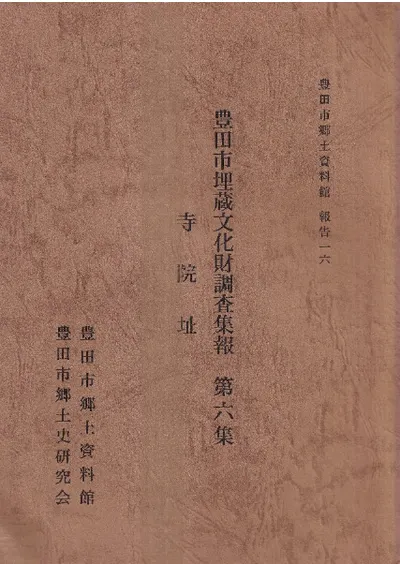 豊田市郷土資料館 報告一六
豊田市埋蔵文化財調査集報 第六集
寺院址
豊田市郷土資料館
豊田市郷土史研究会